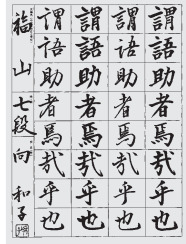 謂語助者焉哉乎也
謂語助者焉哉乎也
謂語助者焉哉乎也
謂語助者焉哉乎也
福山 七段 向 和子